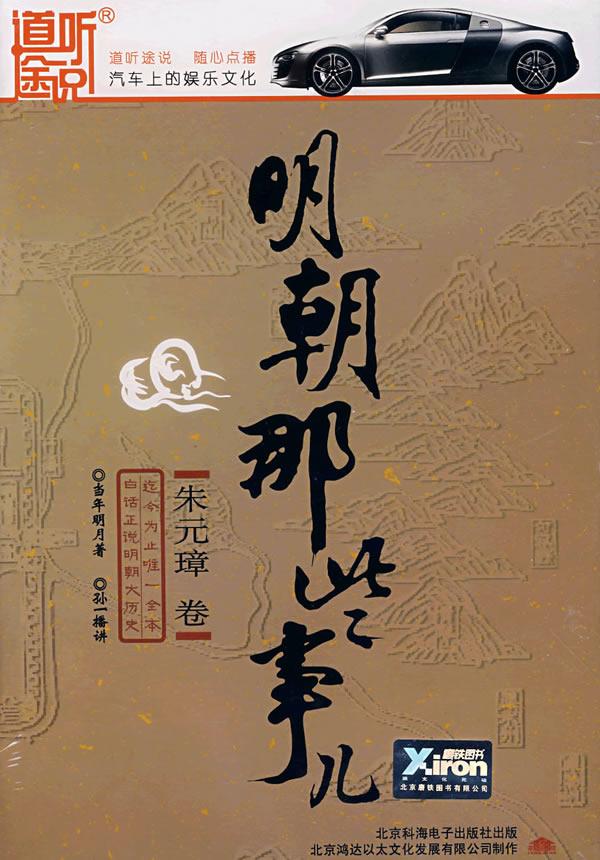 道听途说®
道听途说 随心点播
汽车上的娱乐文化
明朝那些事儿
朱元璋 卷
迄今为止唯一全本
白话正说明朝大历史
◎当年明月著 ◎孙一播讲
磨铁图书
X-iron
北京磨铁图书有限公司
北京科海电子出版社出版
北京鸿达以太文化发展有限公司制作